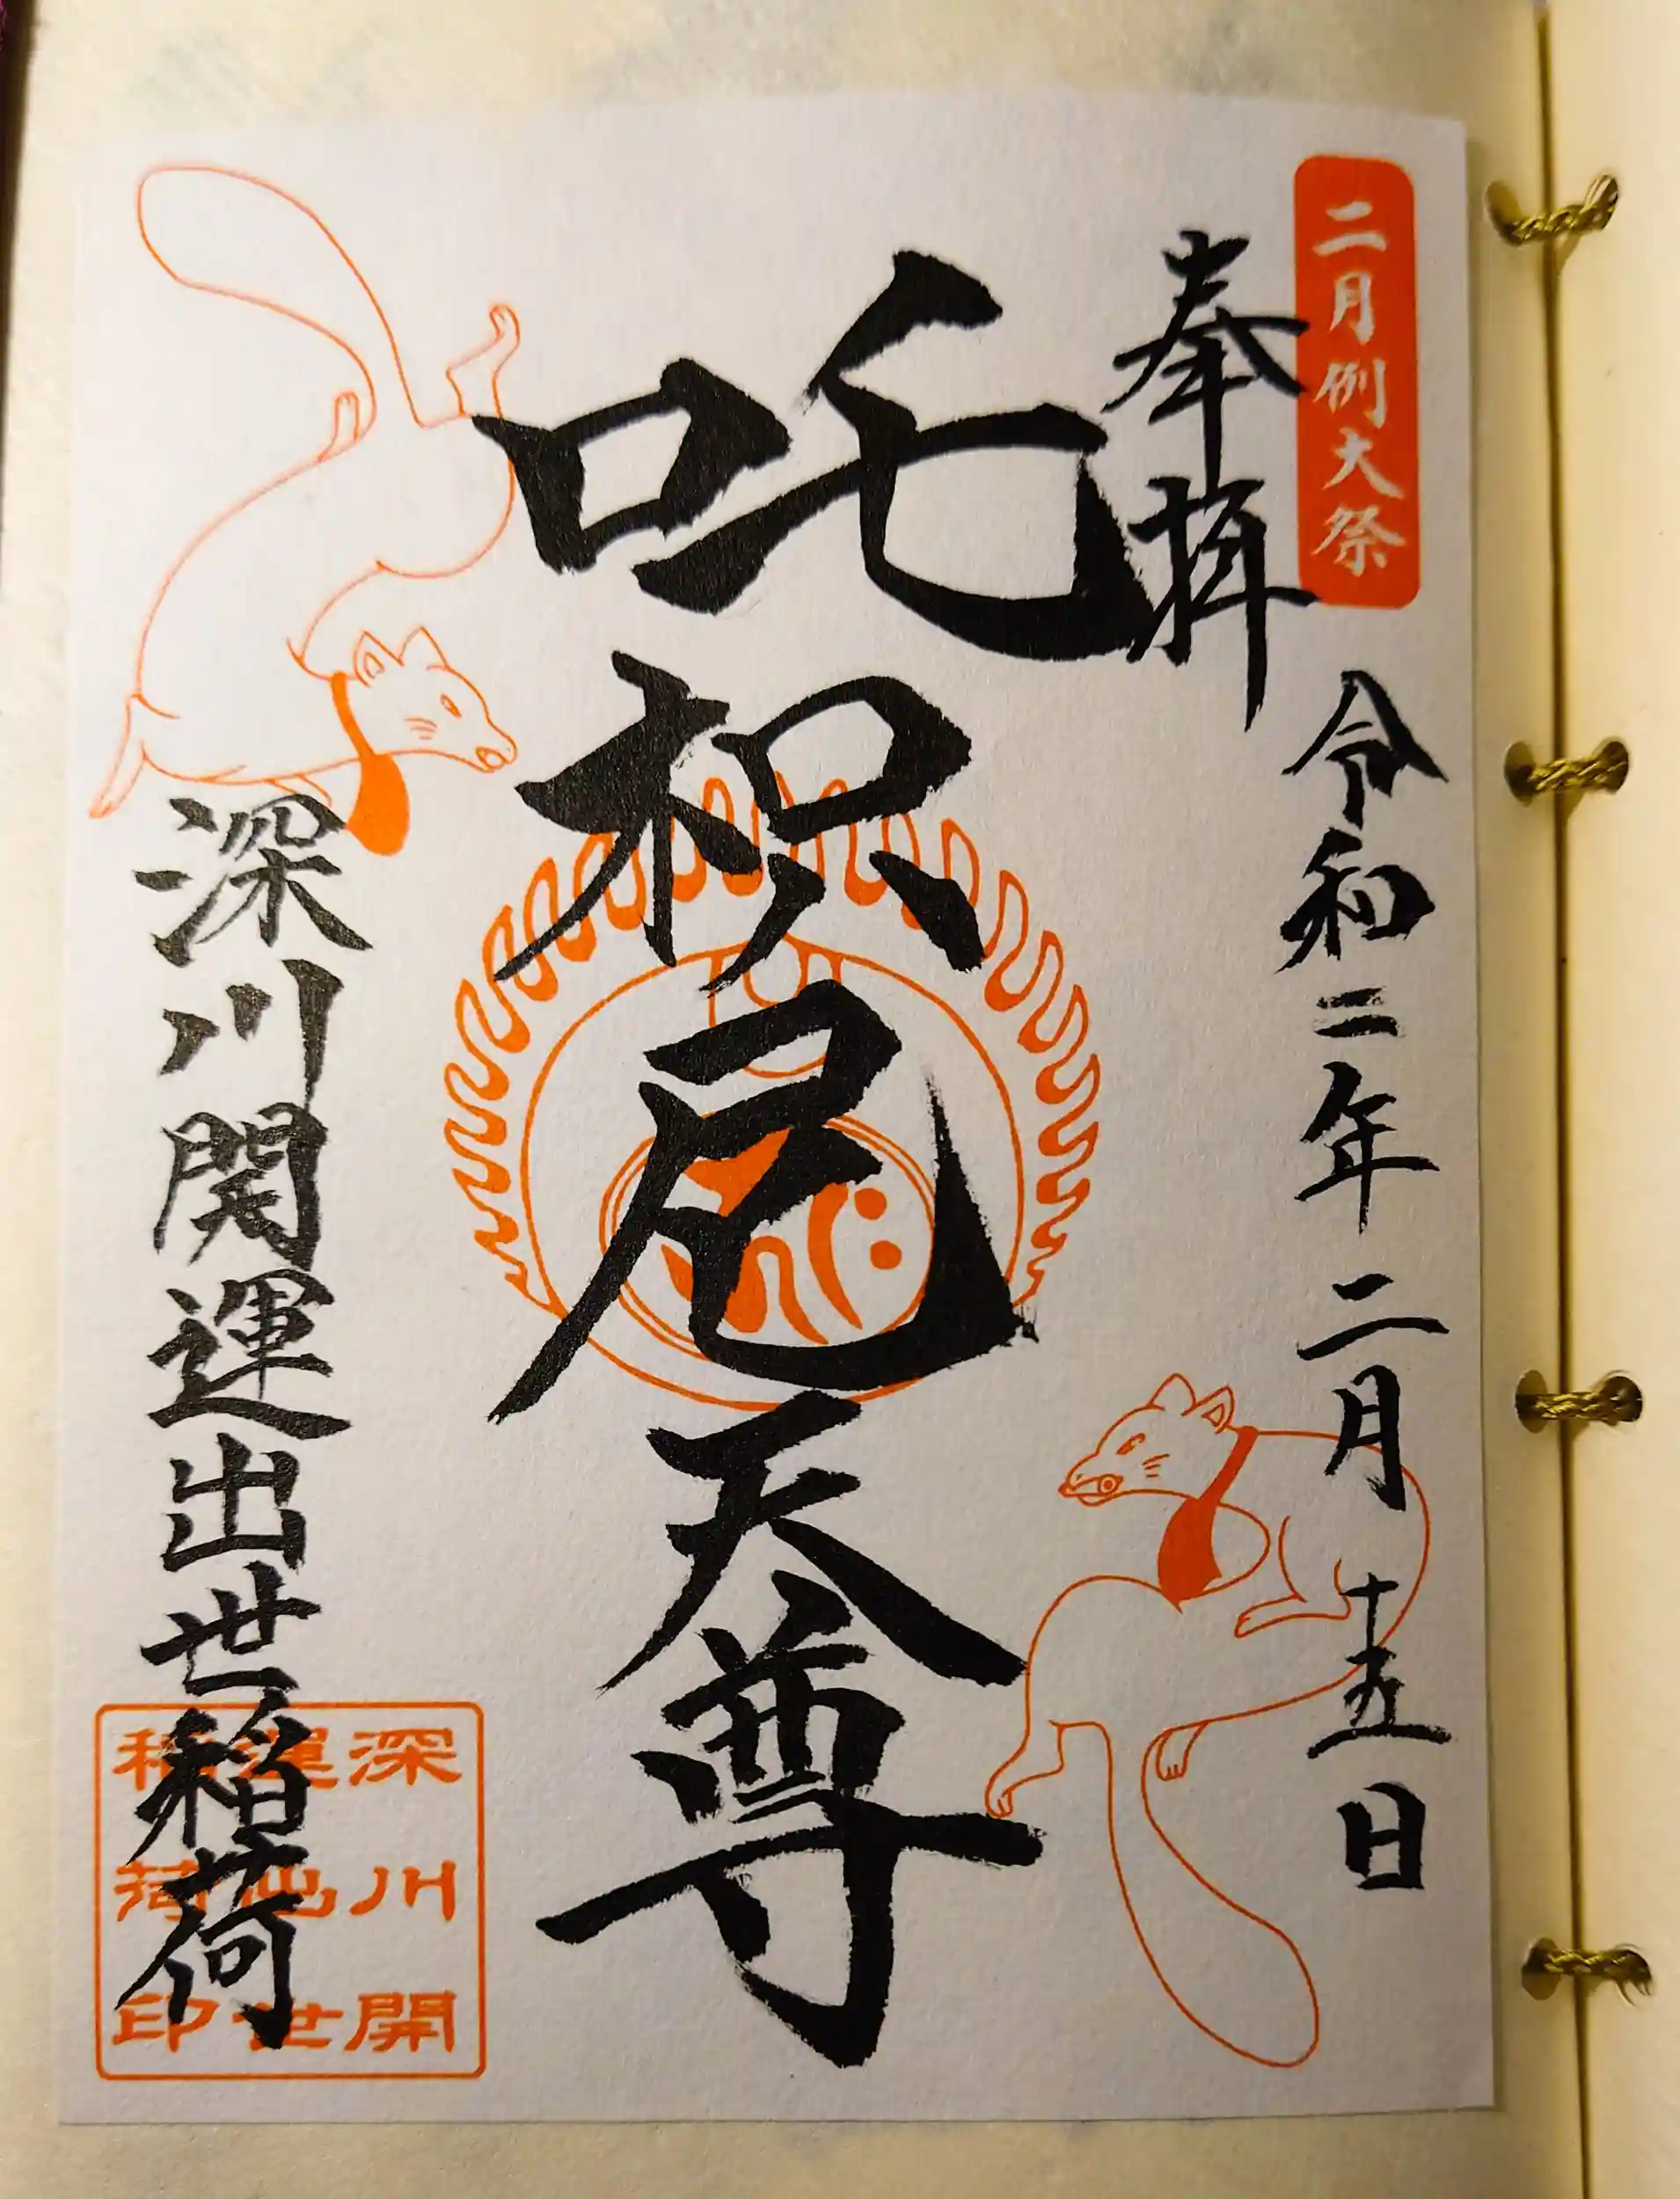 二月例大祭
奉拝
令和二年二月十五日
吒枳尼天尊
深川開運出世稲荷
深川開
運出世
稲荷印